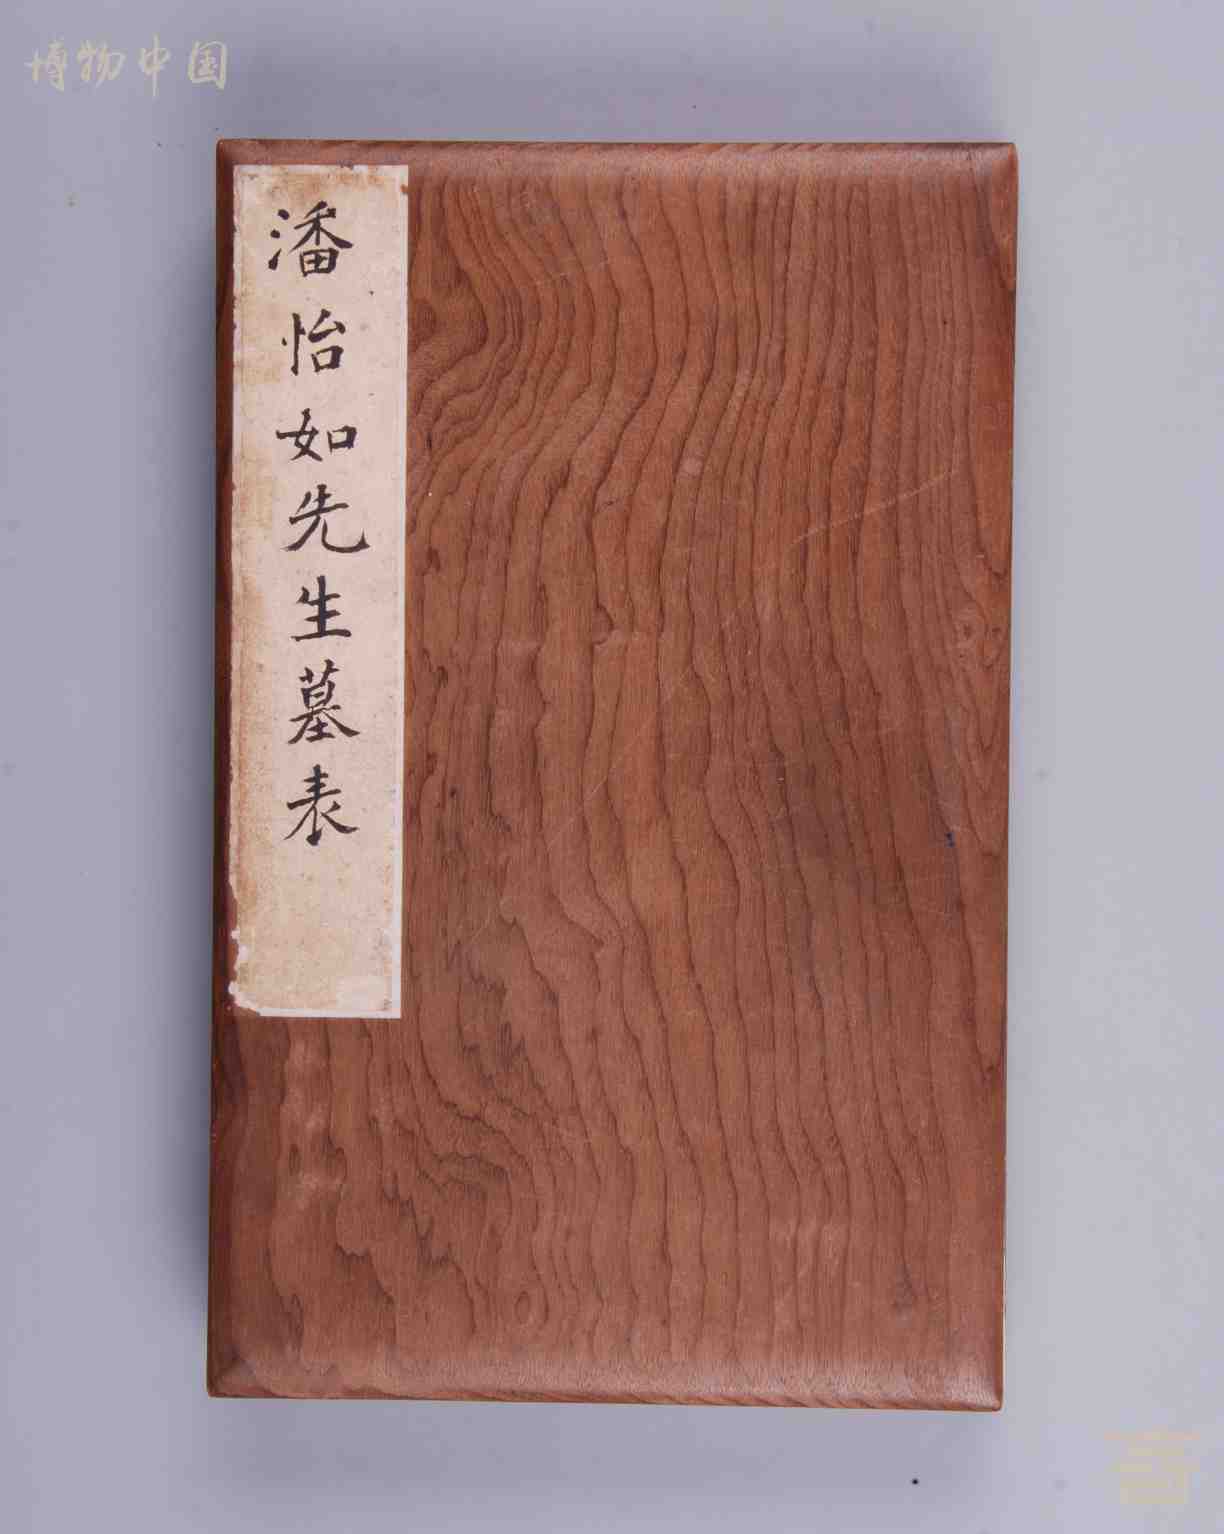 博物中国
潘怡如先生墓表